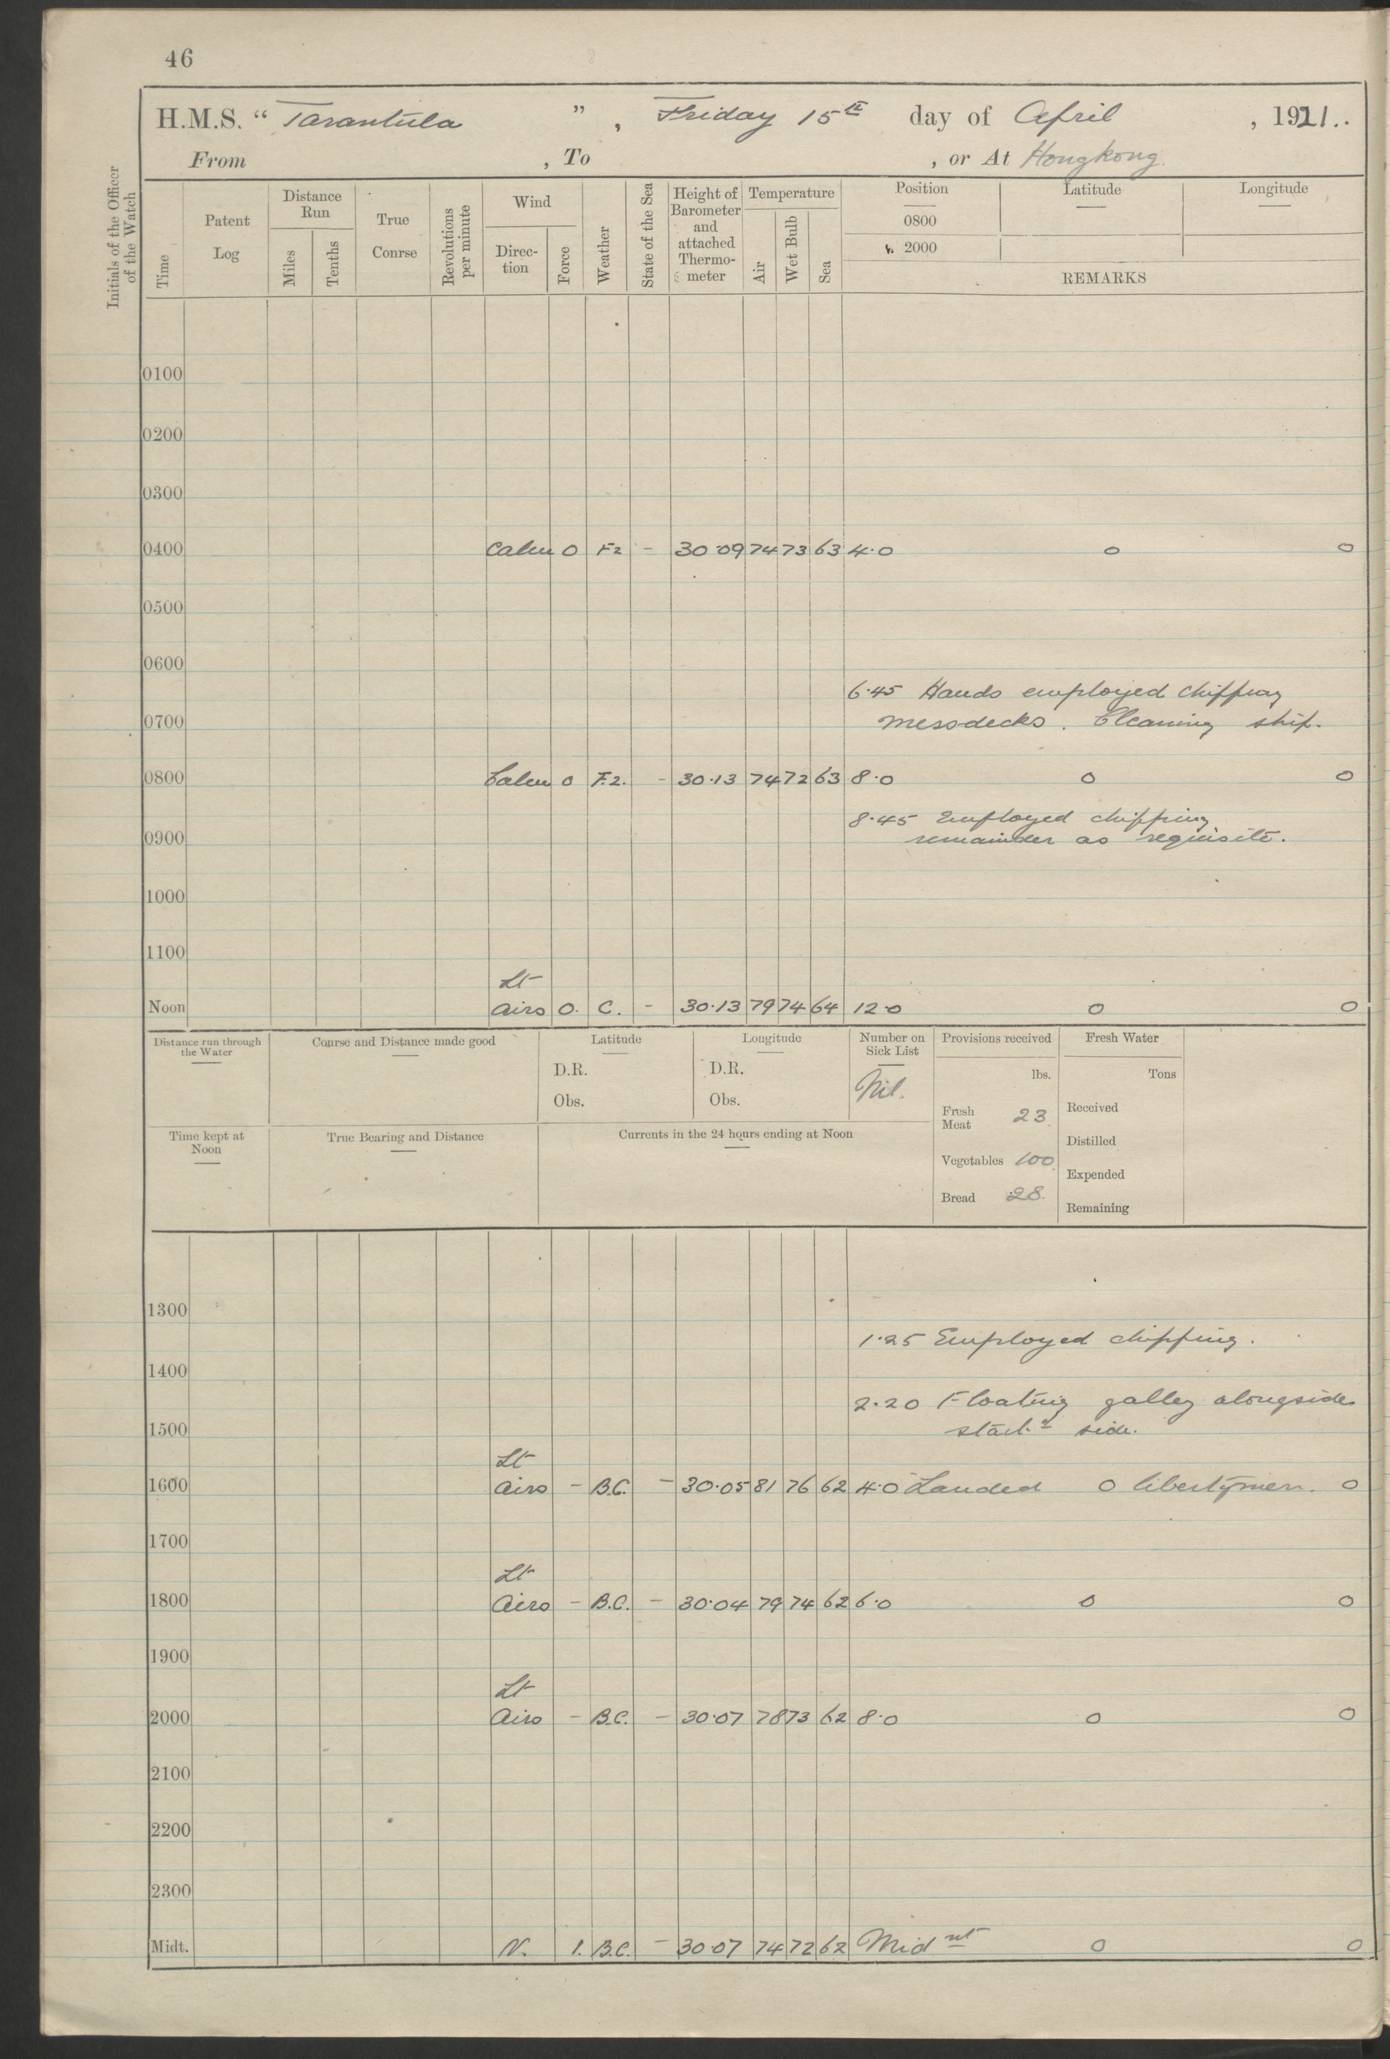 46
H.M.S. “ Tarantula ” , Friday 15th day of April , 1921..
From , To , or At Hongkong.
Initials of the Officer of the Watch
Time
Patent Log
Distance Run
Miles
Tenths
True Course
Revolutions per minute
Wind
Direction
Force
Weather
State of the Sea
Height of Barometer and attached Thermometer
Temperature
Air
Wet Bulb
Sea
Position Latitude Longitude
0800
2000
REMARKS
0100
0200
0300
0400 Calm 0 F2 - 30.09 74 73 63 4.0 0 0
0500
0600
6.45 Hands employed chipping
0700 messdecks. Cleaning ship.
0800 Calm 0 F.2. - 30.13 74 72 63 8.0 0 0
8.45 Employed chipping
0900 remainder as requisite.
1000
1100
Lt
Noon airs 0. C. - 30.13 79 74 64 12.0 0 0
Distance run through the Water
Course and Distance made good
Latitude
D.R.
Obs.
Longitude
D.R.
Obs.
Number on Sick List
Nil.
Provisions received
lbs.
Fresh Meat 23
Vegetables 100
Bread 28.
Fresh Water
Tons
Received
Distilled
Expended
Remaining
Time kept at Noon
True Bearing and Distance
Currents in the 24 hours ending at Noon
1300
1.25 Employed chipping.
1400
2.20 Floating galley alongside
1500 starbd side.
Lt
1600 airs - B.C. - 30.05 81 76 62 4.0 Landed 0 libertymen. 0
1700
Lt
1800 Airs - B.C. - 30.04 79 74 62 6.0 0 0
1900
Lt
2000 Airs - B.C. - 30.07 78 73 62 8.0 0 0
2100
2200
2300
Midt. N. 1. B.C. - 30.07 74 72 62 Midnt 0 0